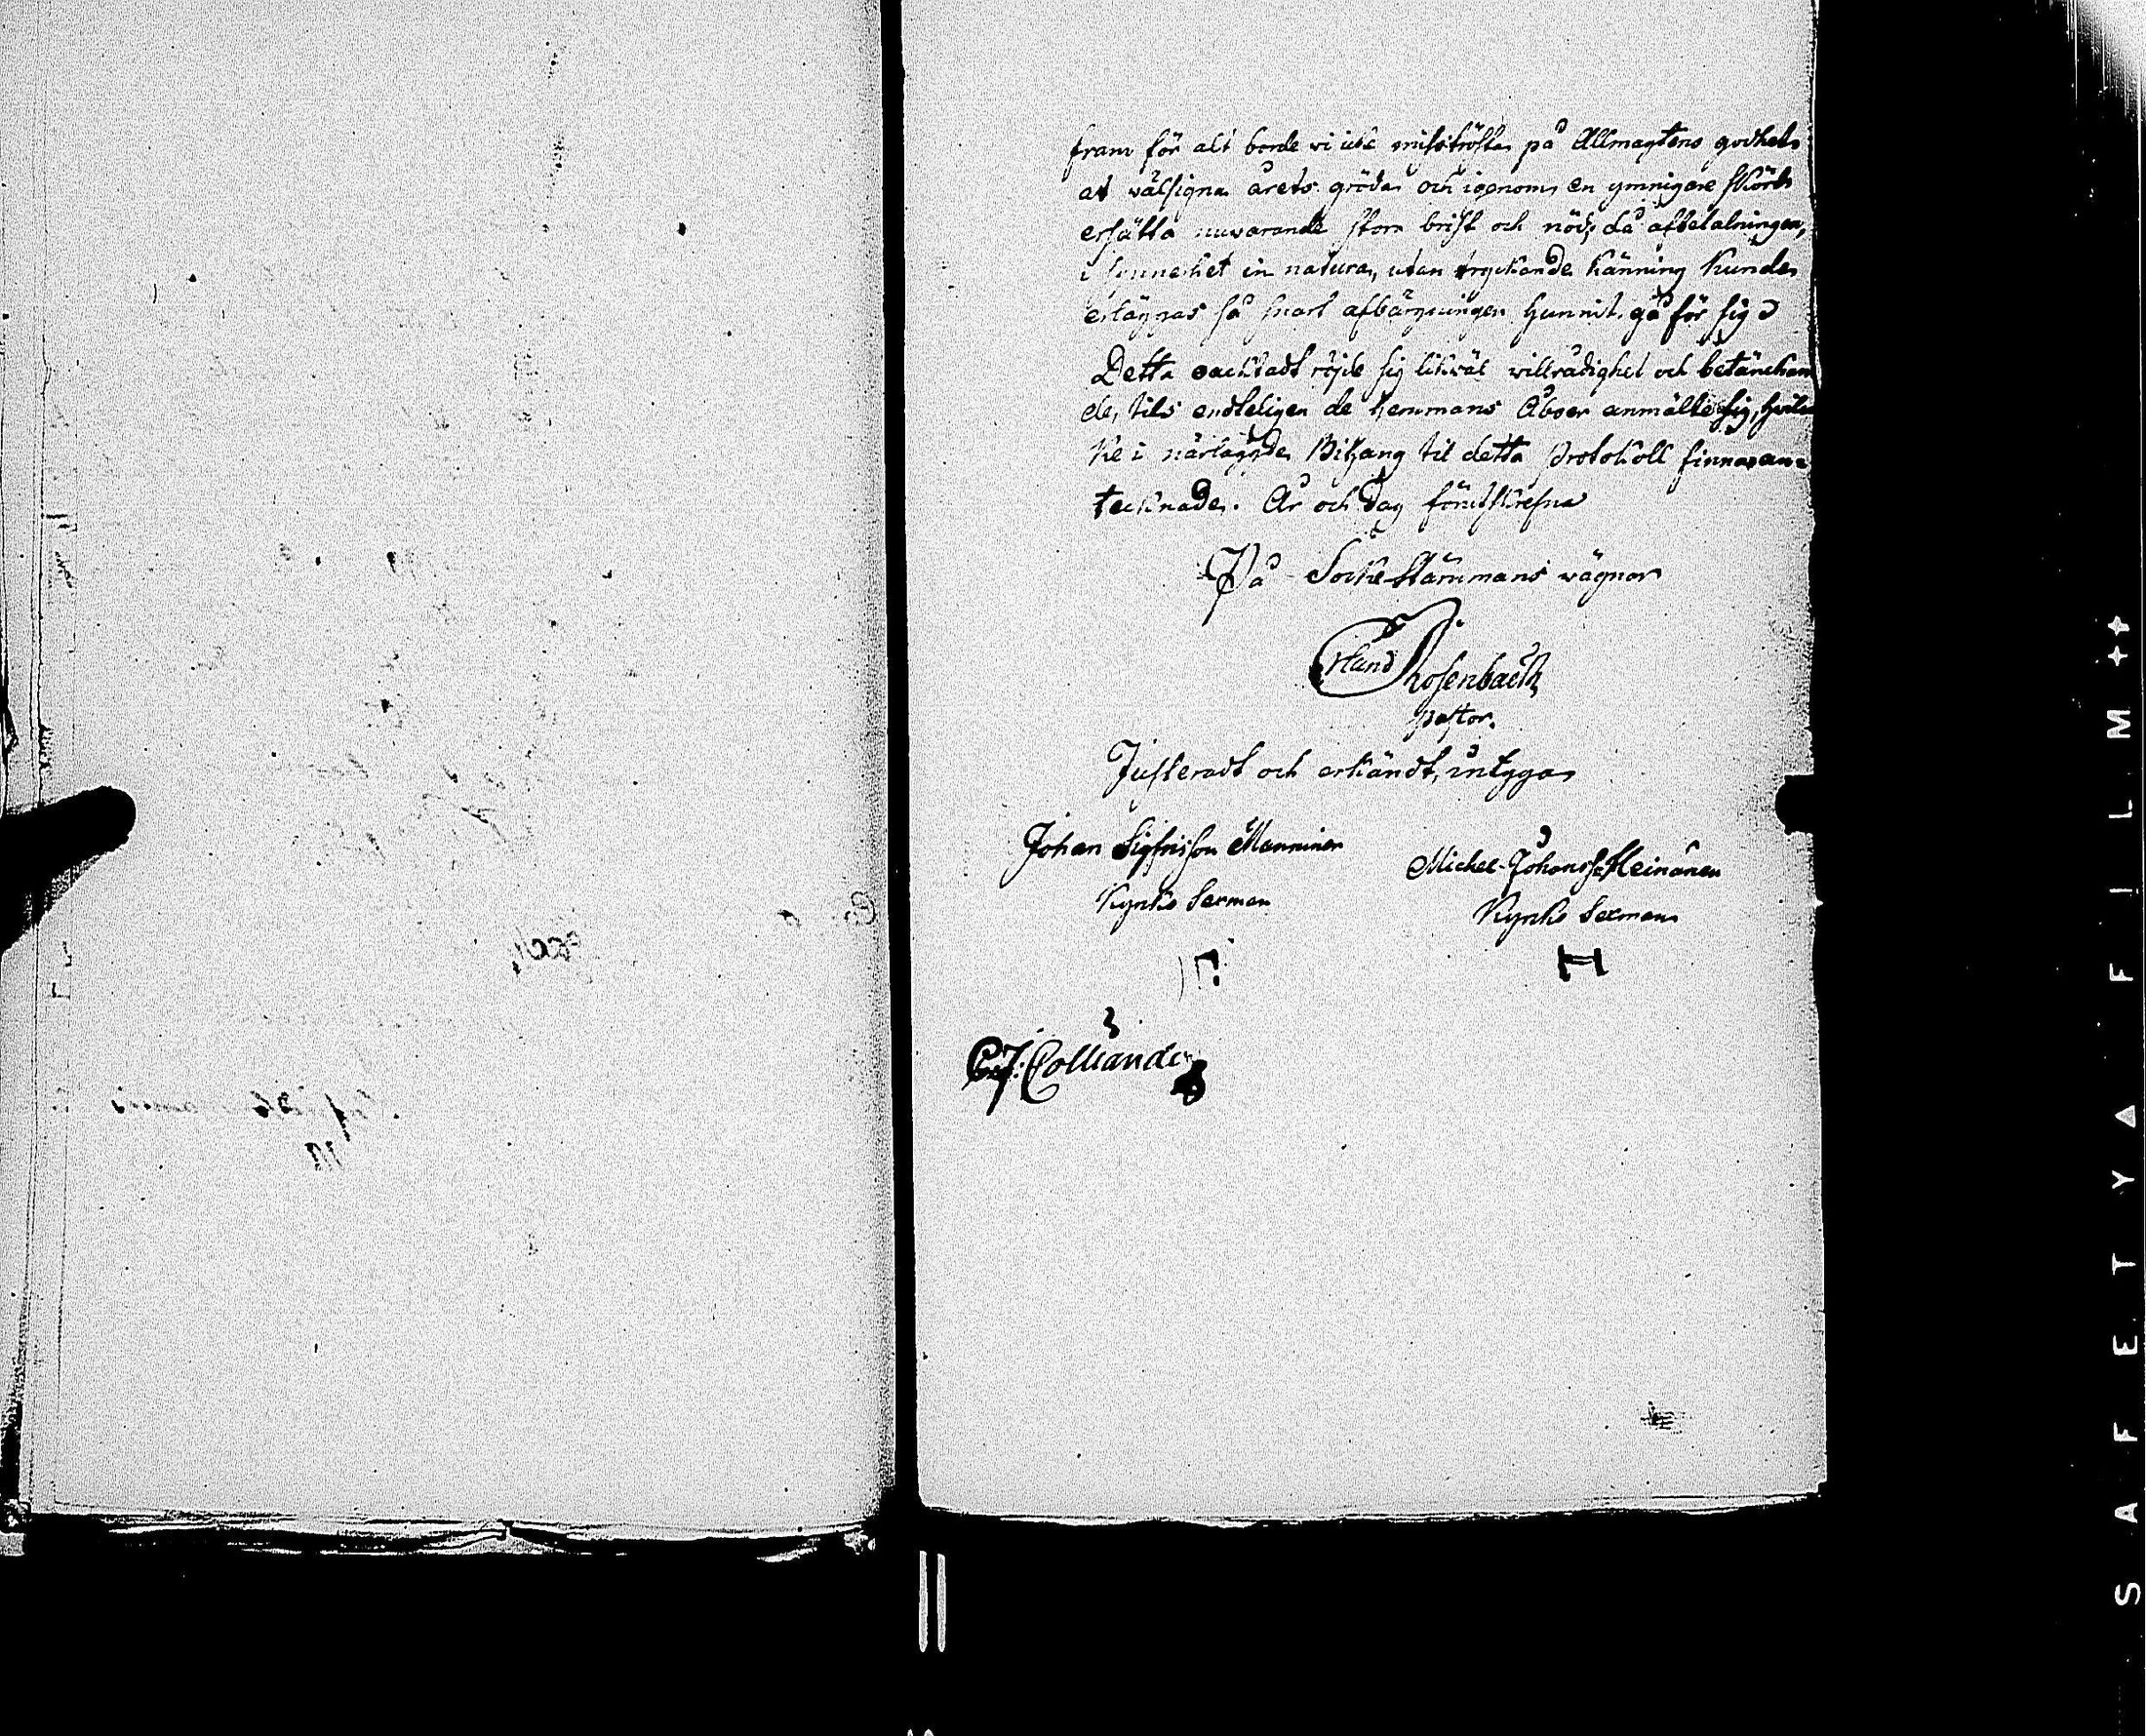 fram för alt borde vi icke misströsta på Allmagtens godhet
at välsigna årets gröda och igenom en ymnigare skörd
ersätta nuvarande stora brist och nöd, då afbetalningen,
i synnerhet in natura, utan tryckande känning kunde
erläggas så snart afbärgningen hunnit gå för sig
Detta oacktadt röjde sig likväl villrådighet och betänckan
de, tils endteligen de hemmans Åboer anmälte sig, hvil
ke i närlagde Bihang til detta Protokoll finnas an-
tecknade. År och Dag förutskrefne
På Sockestämmans vägnar
Erland Rosenback
pastor.
Justeradt och erkändt, intyga
Johan Sigfrisson Manninen
Kyrko Sexman
Michel Johanss. Heinänen
Kyrko Sexman
H
C. J. Colliander
S A F E T Y ▲ F I L M